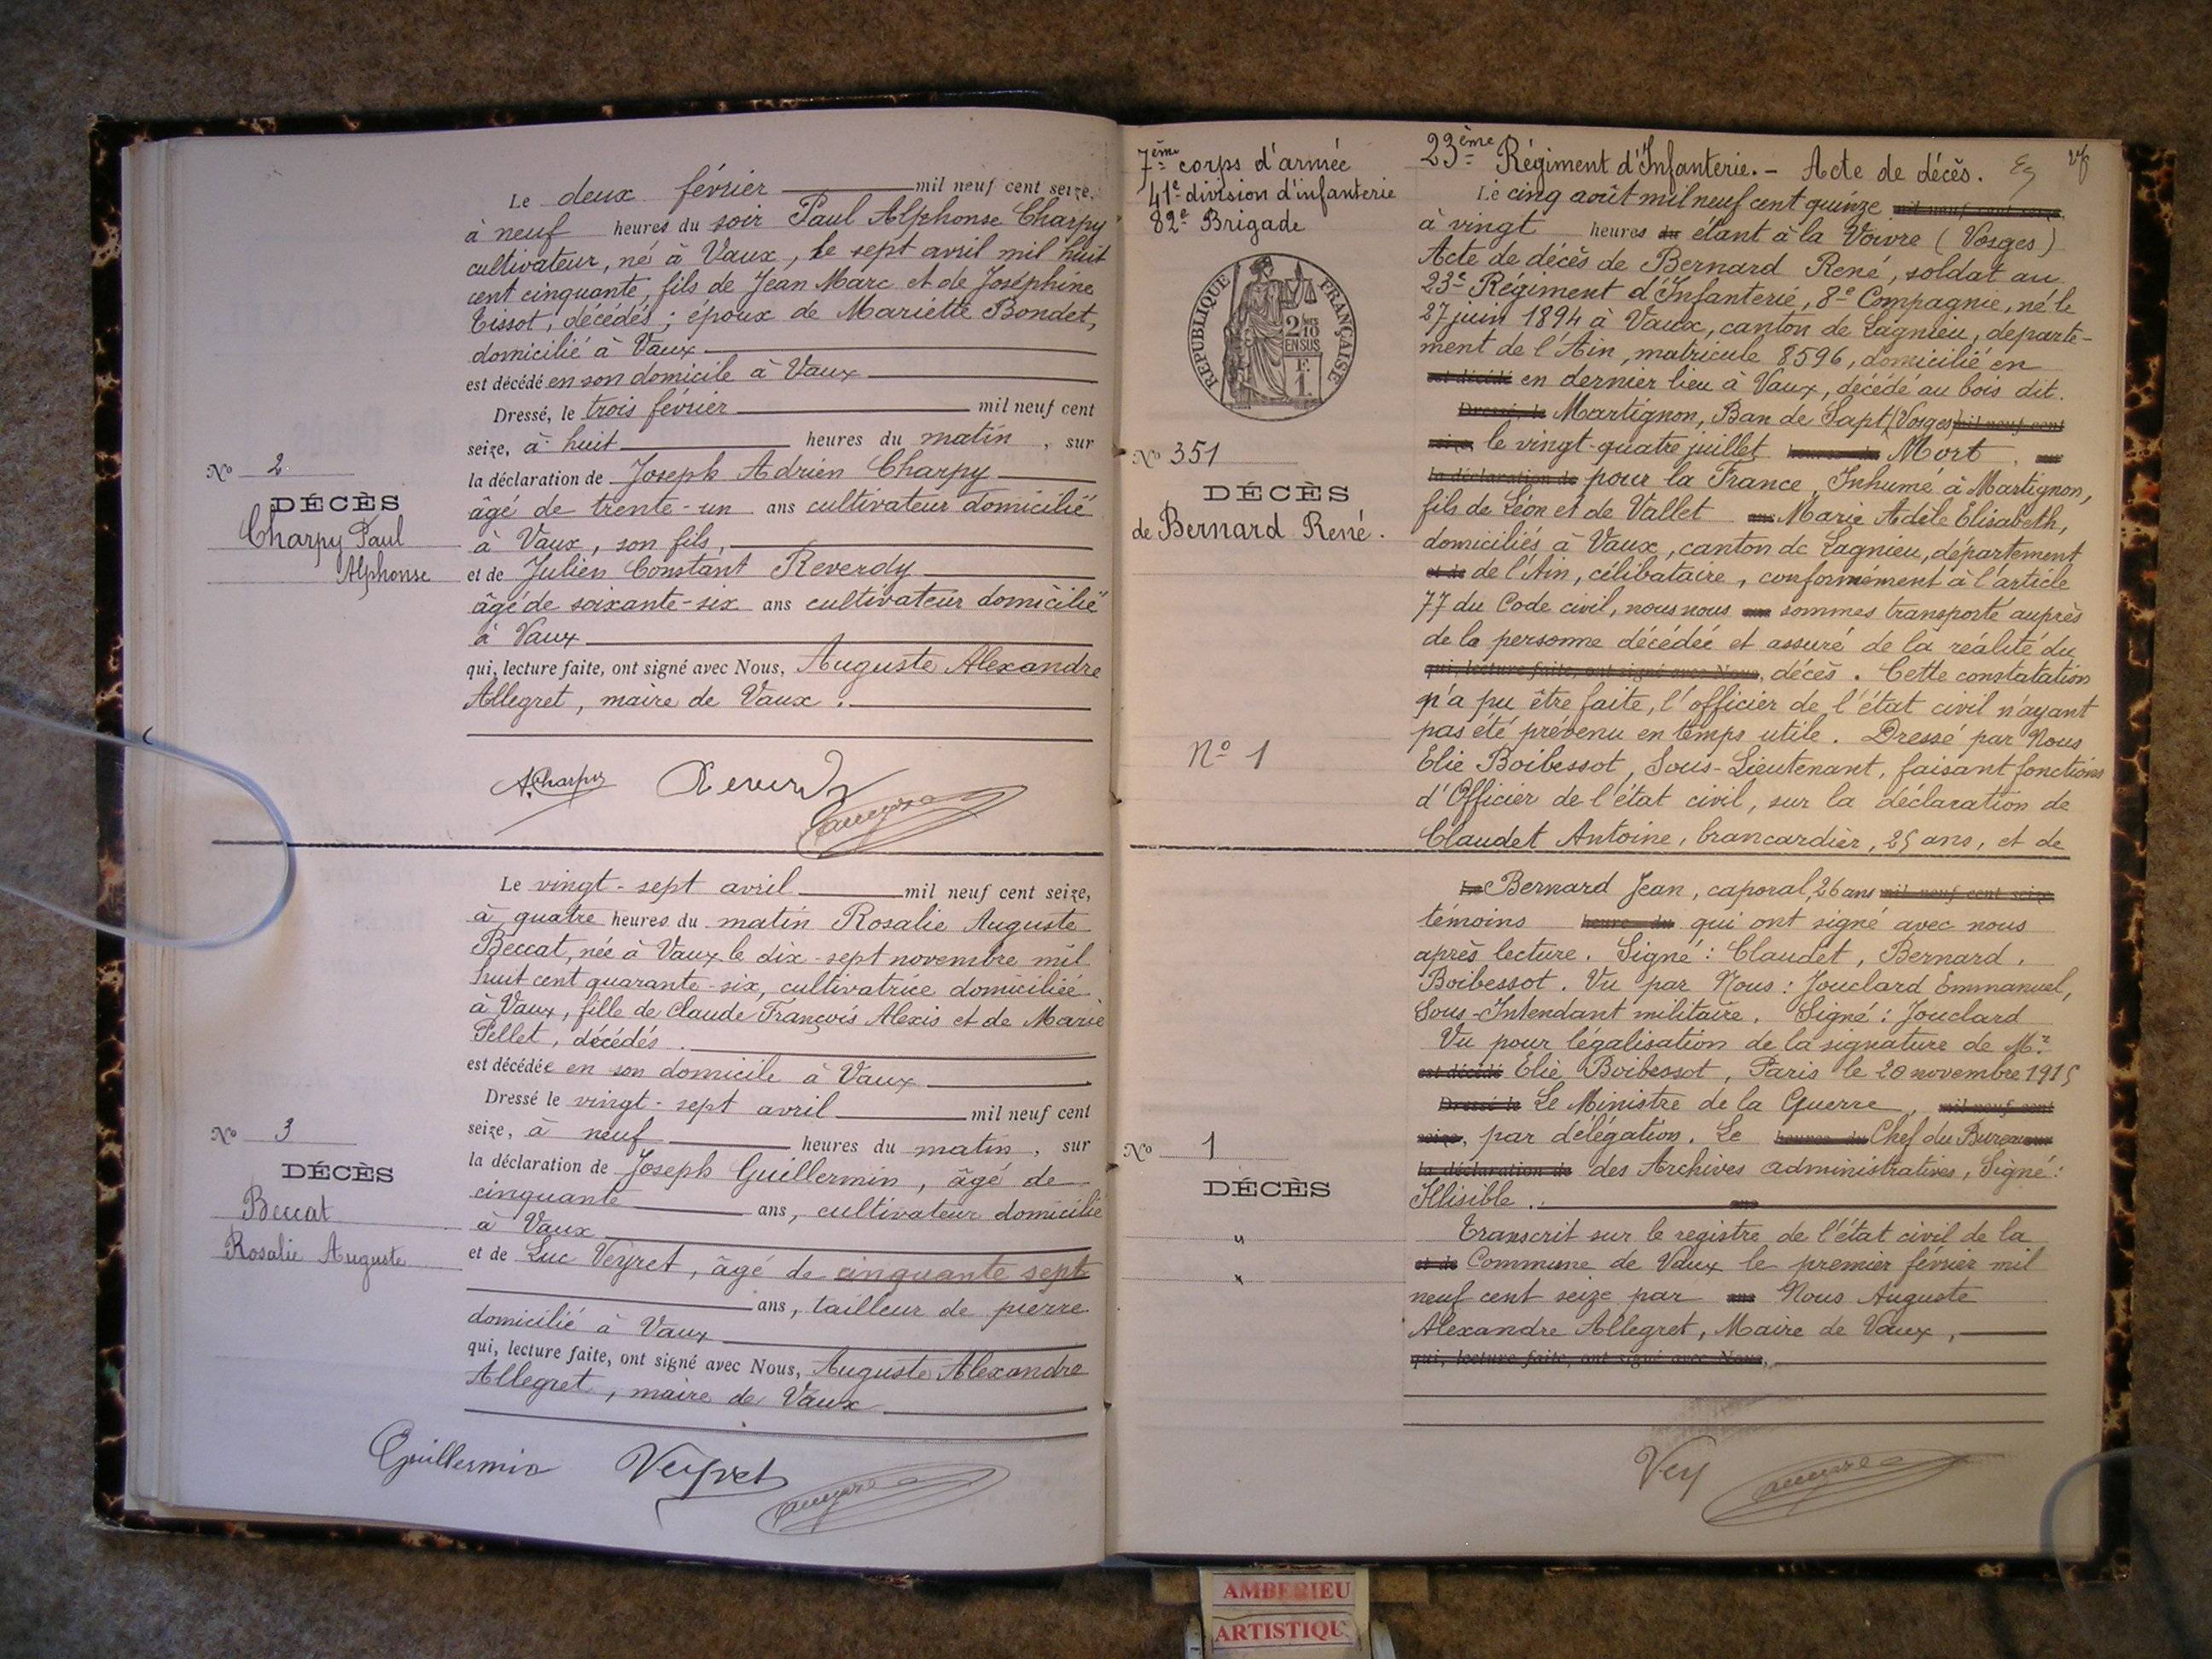 Le deux février mil neuf cent seize,
à neuf heures du soir Paul Alphonse Charpy
cultivateur, né à Vaux, le sept avril mil huit
cent cinquante, fils de Jean Marc et de Joséphine
Tissot, décédés ; époux de Mariette Bondet,
domicilié à Vaux
est décédé en son domicile à Vaux
Dressé, le trois février mil neuf cent
seize, à huit heures du matin, sur
la déclaration de Joseph Adrien Charpy
âgé de trente-un ans cultivateur domicilié
à Vaux, son fils,
et de Julien Constant Reverdy
âgé de soixante-six ans cultivateur domicilié
à Vaux
qui, lecture faite, ont signé avec Nous, Auguste Alexandre
Allegret, maire de Vaux.
Nº 2
DÉCÈS
Charpy Paul
Alphonse
A. Charpy Reverdy
Le vingt-sept avril mil neuf cent seize,
à quatre heures du matin Rosalie Auguste
Beccat, née à Vaux le dix-sept novembre mil
huit cent quarante-six, cultivatrice domiciliée
à Vaux, fille de Claude François Alexis et de Marie
Pellet, décédés.
est décédée en son domicile à Vaux
Dressé le vingt-sept avril mil neuf cent
seize, à neuf heures du matin, sur
la déclaration de Joseph Guillermin, âgé de
cinquante ans, cultivateur domicilié
à Vaux
et de Luc Veyret, âgé de cinquante sept
ans, tailleur de pierre
domicilié à Vaux
qui, lecture faite, ont signé avec Nous, Auguste Alexandre
Allegret, maire de Vaux
Nº 3
DÉCÈS
Beccat
Rosalie Auguste
Guillermin Veyret
7ème corps d'armée
41e division d'infanterie
82e Brigade
RÉPUBLIQUE FRANÇAISE
2/10
EN SUS
F.
1.
Nº 351
DÉCÈS
de Bernard René.
Nº 1
23ème Régiment d'Infanterie. - Acte de décès.
Le cinq août mil neuf cent quinze mil neuf cent seize,
à vingt heures du étant à la Voivre (Vosges)
Acte de décès de Bernard René, soldat au
23e Régiment d'Infanterie, 8e Compagnie, né le
27 juin 1894 à Vaux, canton de Lagnieu, departe-
ment de l'Ain, matricule 8596, domicilié en
est décédé en dernier lieu à Vaux, décédé au bois dit.
Dressé, le Martignon, Ban de Sapt (Vosges) mil neuf cent
seize, le vingt-quatre juillet heures du Mort, sur
la déclaration de pour la France, Inhumé à Martignon,
fils de Léon et de Vallet ans Marie Adèle Elisabeth,
domiciliés à Vaux, canton de Lagnieu, département
et de de l'Ain, célibataire, conformément à l'article
77 du Code civil, nous nous ans sommes transporté auprès
de la personne décédée et assuré de la réalité du
qui, lecture faite, ont signé avec Nous, décès. Cette constatation
n'a pu être faite, l'officier de l'état civil n'ayant
pas été prévenu en temps utile. Dressé par Nous
Elie Boibessot, Sous-Lieutenant, faisant fonctions
d'Officier de l'état civil, sur la déclaration de
Claudet Antoine, brancardier, 25 ans, et de
Le Bernard Jean, caporal, 26 ans mil neuf cent seize
témoins heure du qui ont signé avec nous
après lecture. Signé : Claudet, Bernard,
Boibessot. Vu par Nous : Jouclard Emmanuel,
Sous-Intendant militaire. Signé : Jouclard
Vu pour légalisation de la signature de Mr
est décédé Elie Boibessot, Paris le 20 novembre 1915
Dressé le Le Ministre de la Guerre, mil neuf cent
seize, par délégation. Le heures du Chef du Bureau sur
la déclaration de des Archives administratives, Signé :
Illisible. ans
Transcrit sur le registre de l'état civil de la
et de Commune de Vaux le premier février mil
neuf cent seize par ans Nous Auguste
Alexandre Allegret, Maire de Vaux,
qui, lecture faite, ont signé avec Nous,
Nº 1
DÉCÈS
Vey
AMBERIEU
ARTISTIQU